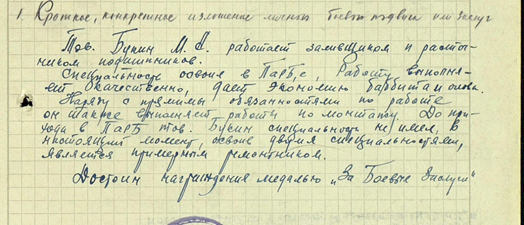 1. Краткое, конкретное изложение личного боевого подвига или заслуг
Тов. Букин М. А. работает заливщиком и расточ-
ником подшипников.
Специальность освоил в ПАРБ'е, Работу выполня-
ет качественно, дает экономию баббита и олова.
Наряду с прямыми обязанностями по работе
он также выполняет работы по монтажу. До при-
хода в ПАРБ тов. Букин специальность не имел, в
настоящий момент, освоив двумя специальностями,
является примерным ремонтником.
Достоин награждения медалью „За Боевые Заслуги"